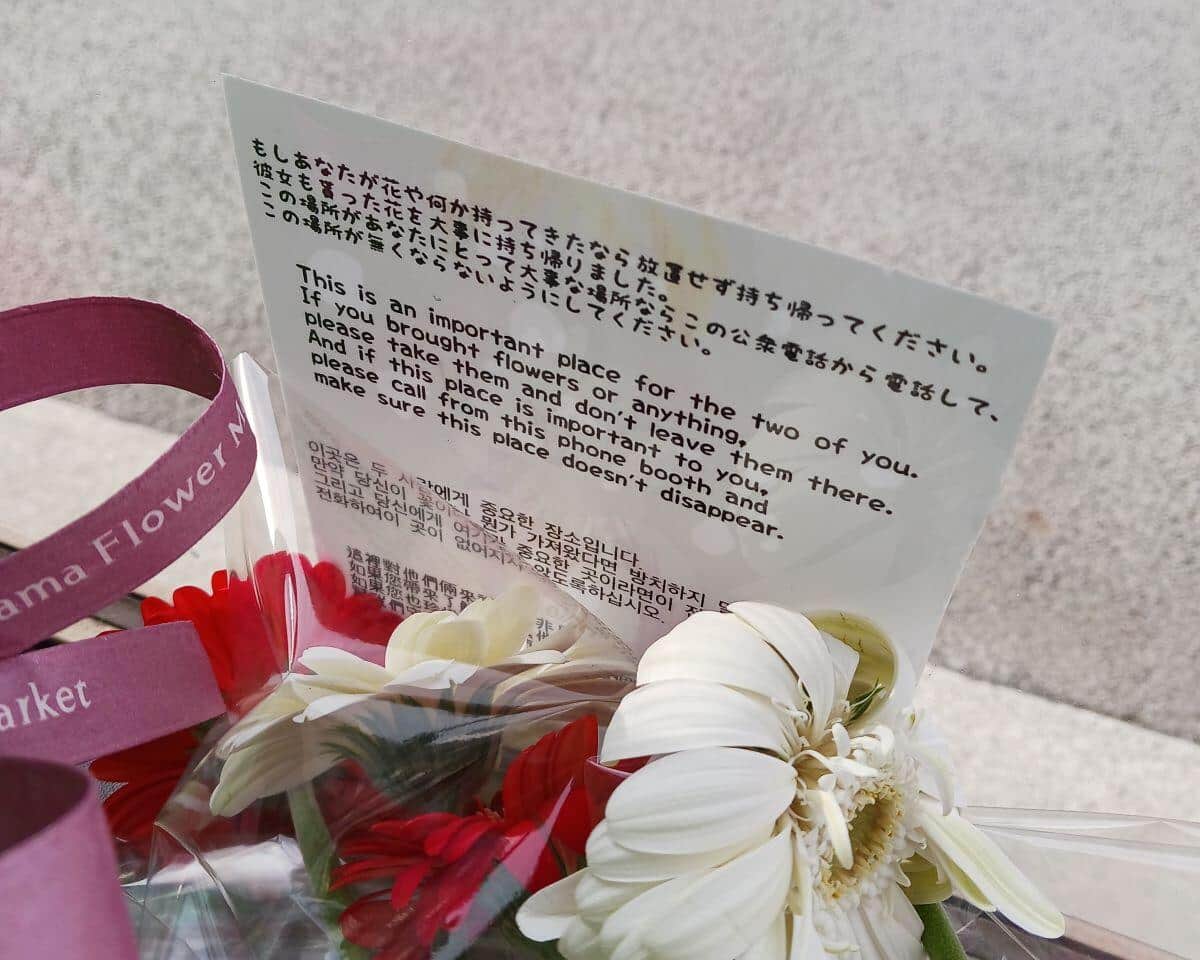 もしあなたが花や何か持ってきたなら放置せず持ち帰ってください。
彼女も貰った花を大事に持ち帰りました。
この場所があなたにとって大事な場所ならこの公衆電話から電話して、
この場所が無くならないようにしてください。
This is an important place for the two of you.
If you brought flowers or anything,
please take them and don't leave them there.
And if this place is important to you,
please call from this phone booth and
make sure this place doesn't disappear.
이곳은 두 사람에게 중요한 장소입니다
만약 당신이 꽃이나 뭔가 가져왔다면 방치하지
그리고 당신에게 여기가 중요한 곳이라면이
전화하여이 곳이 없어지지 않도록하십시오.
這裡對他們倆來
如果您帶來了
如果您也
ama Flower M
arket